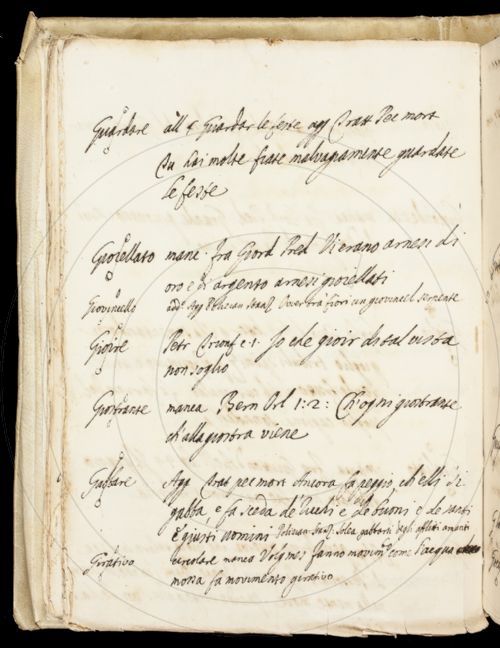 Guardare all § Guardar le feste agg Tratt Pec mort
Tu hai molte fiate malvagiamente guardate
le feste
Gioiellato manc. fra Giord Pred Vi erano arnesi di
oro e di argento arnesi gioiellati
Giovincello add. Agg Polizian Stanz Over tra' fiori un giovincel serpente
Gioire Petr Trionf c. 1. Io ed e gioir di tal vista
non soglio
Giostrante manca Bern Orl 1: 2: Ch'ogni giostrante
ch'alla giostra viene
Gabbare Agg Trat pec mort Ancora fa peggio, ch'elli si
gabba e fa sceda de' e de buoni e de santi
e giusti uomini Polizian Stanz Solea gabbarsi degli afflitti amanti
Girativo circolare manca fanno movim.to come l'acqua
mossa fa movimento girativo